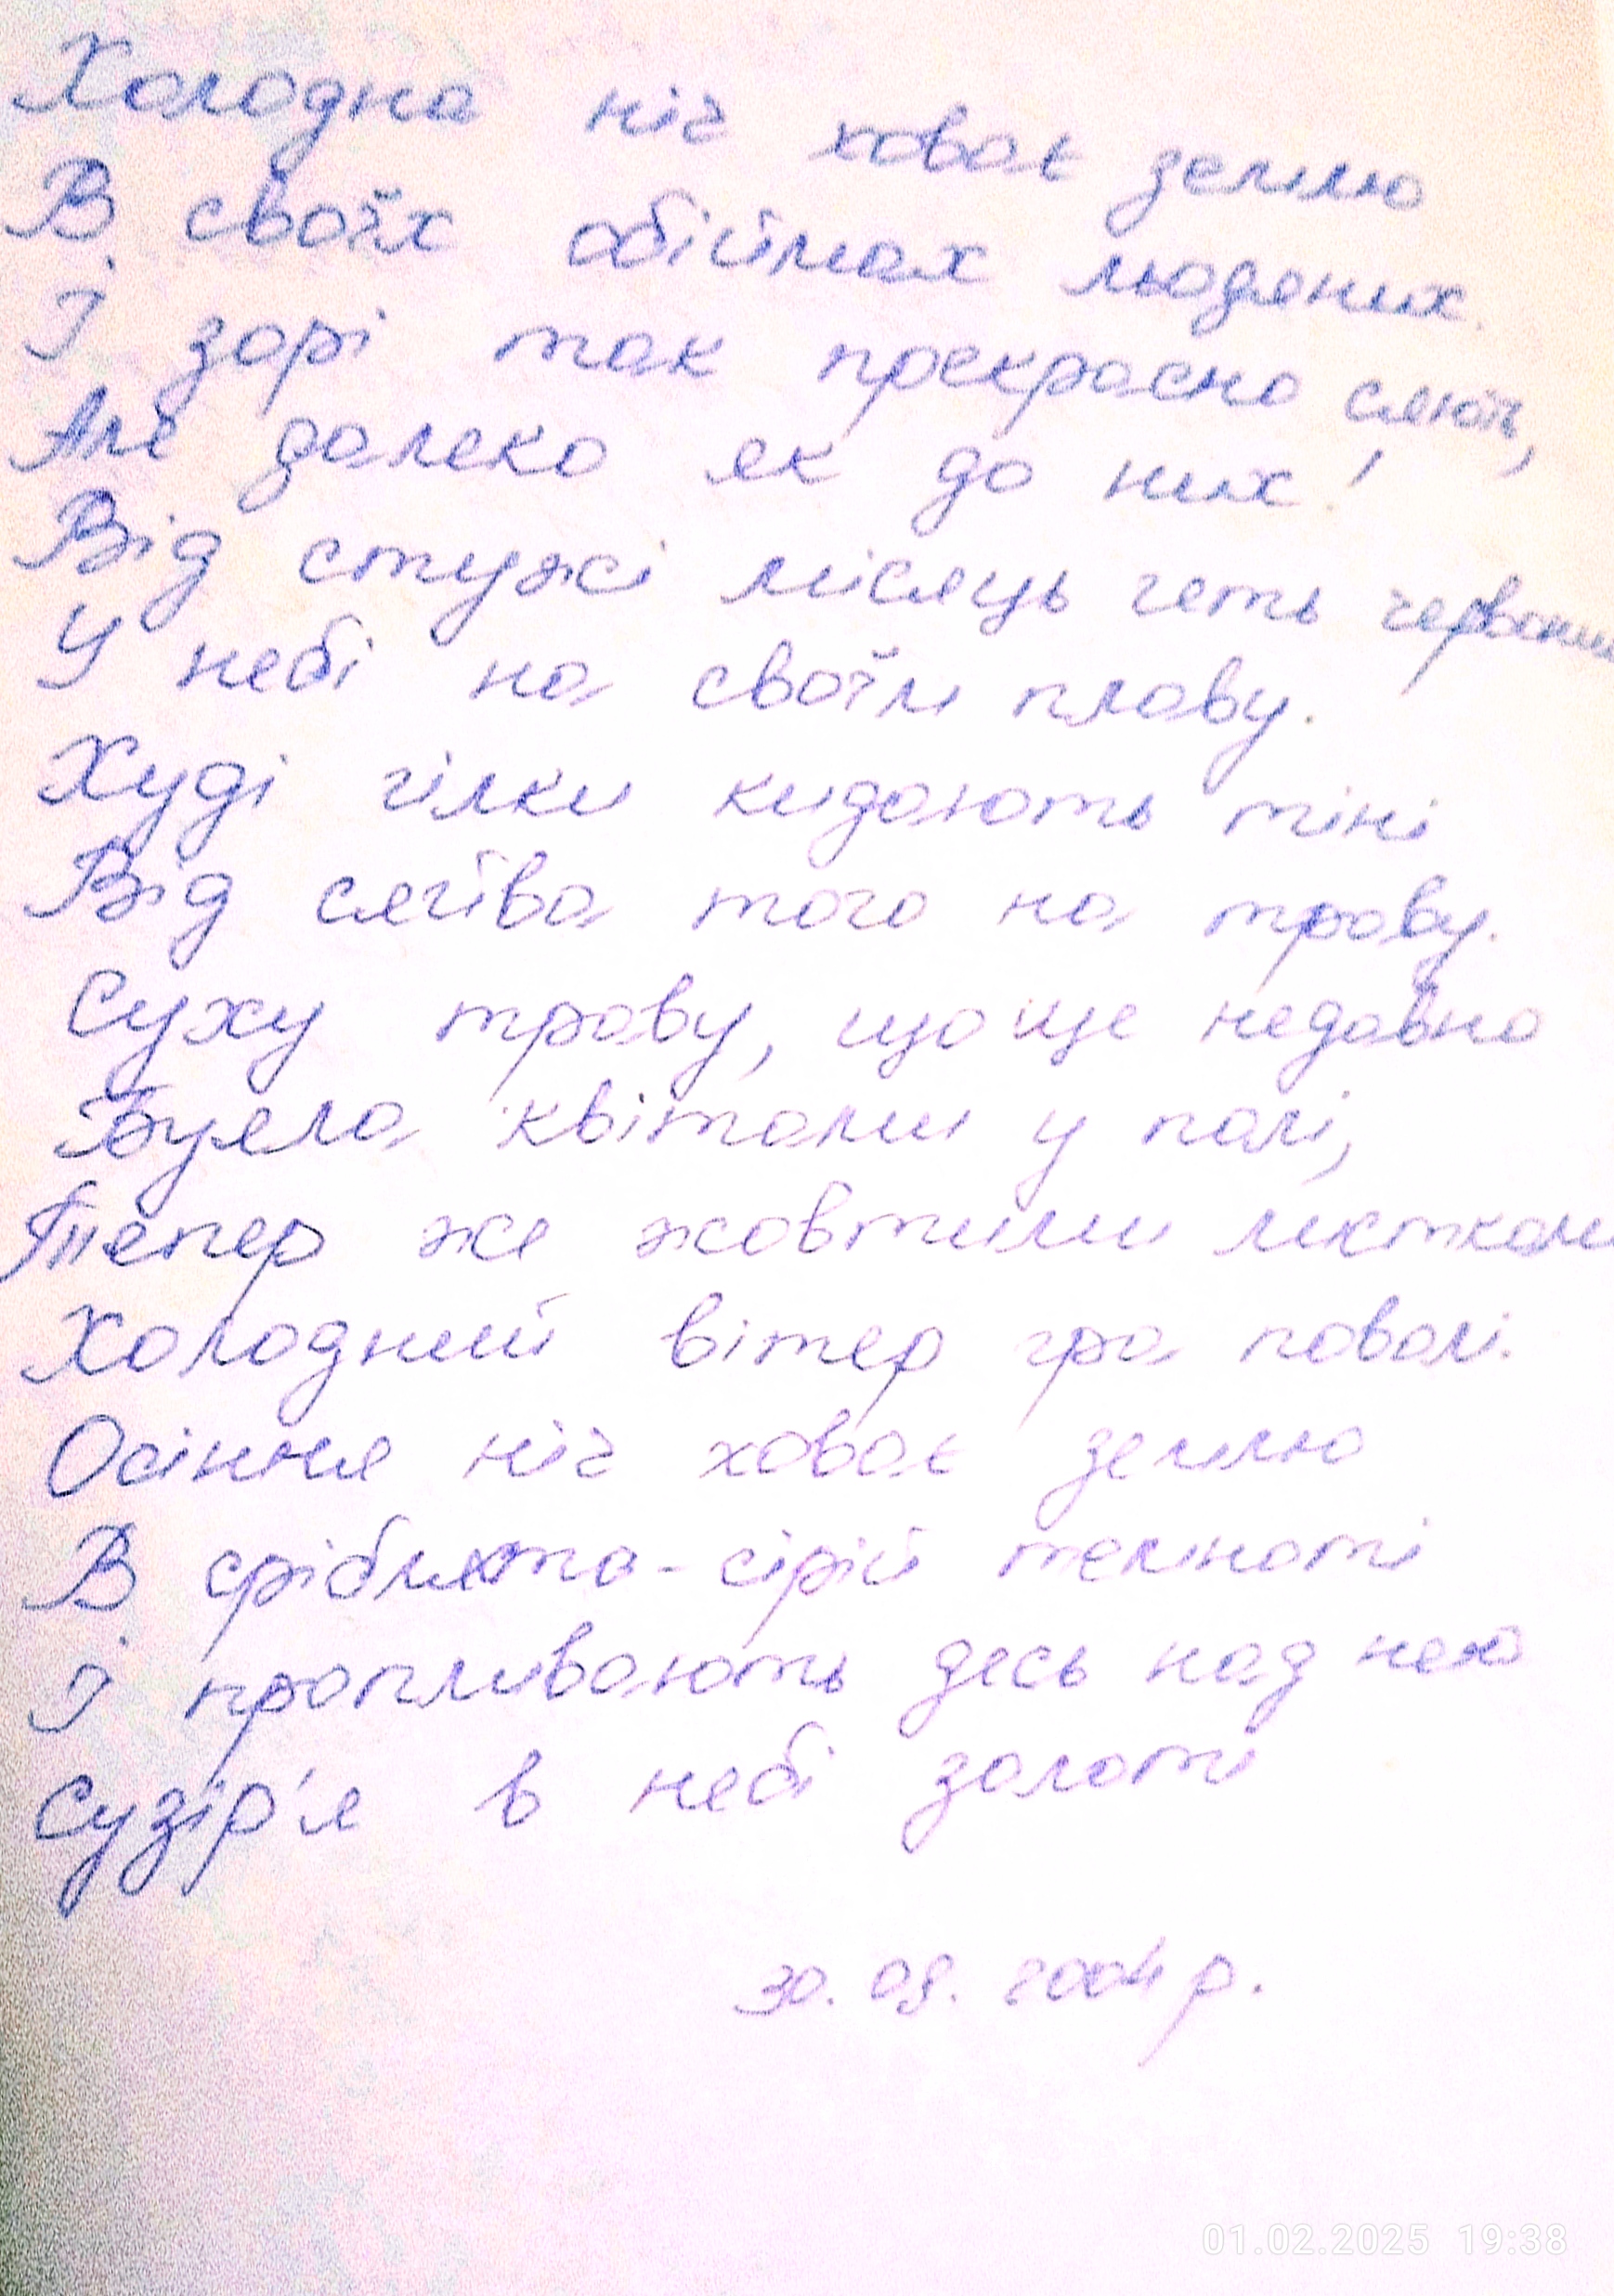 Холодна ніч ховає землю
В своїх обіймах людяних.
І зорі так прекрасно сяють,
Але далеко як до них!
Від стужі місяць геть червоний
У небі на своїм плаву.
Худі гілки кидають тіні
Від сяйва того на траву.
Суху траву, що ще недавно
Буяла квітами у полі,
Тепер же жовтими листками
Холодний вітер гра поволі.
Осіння ніч ховає землю
В сріблясто-сірій темноті
І пропливають десь над нею
Сузір'я в небі золоті
30. 09. 2004 р.
01.02.2025 19:38